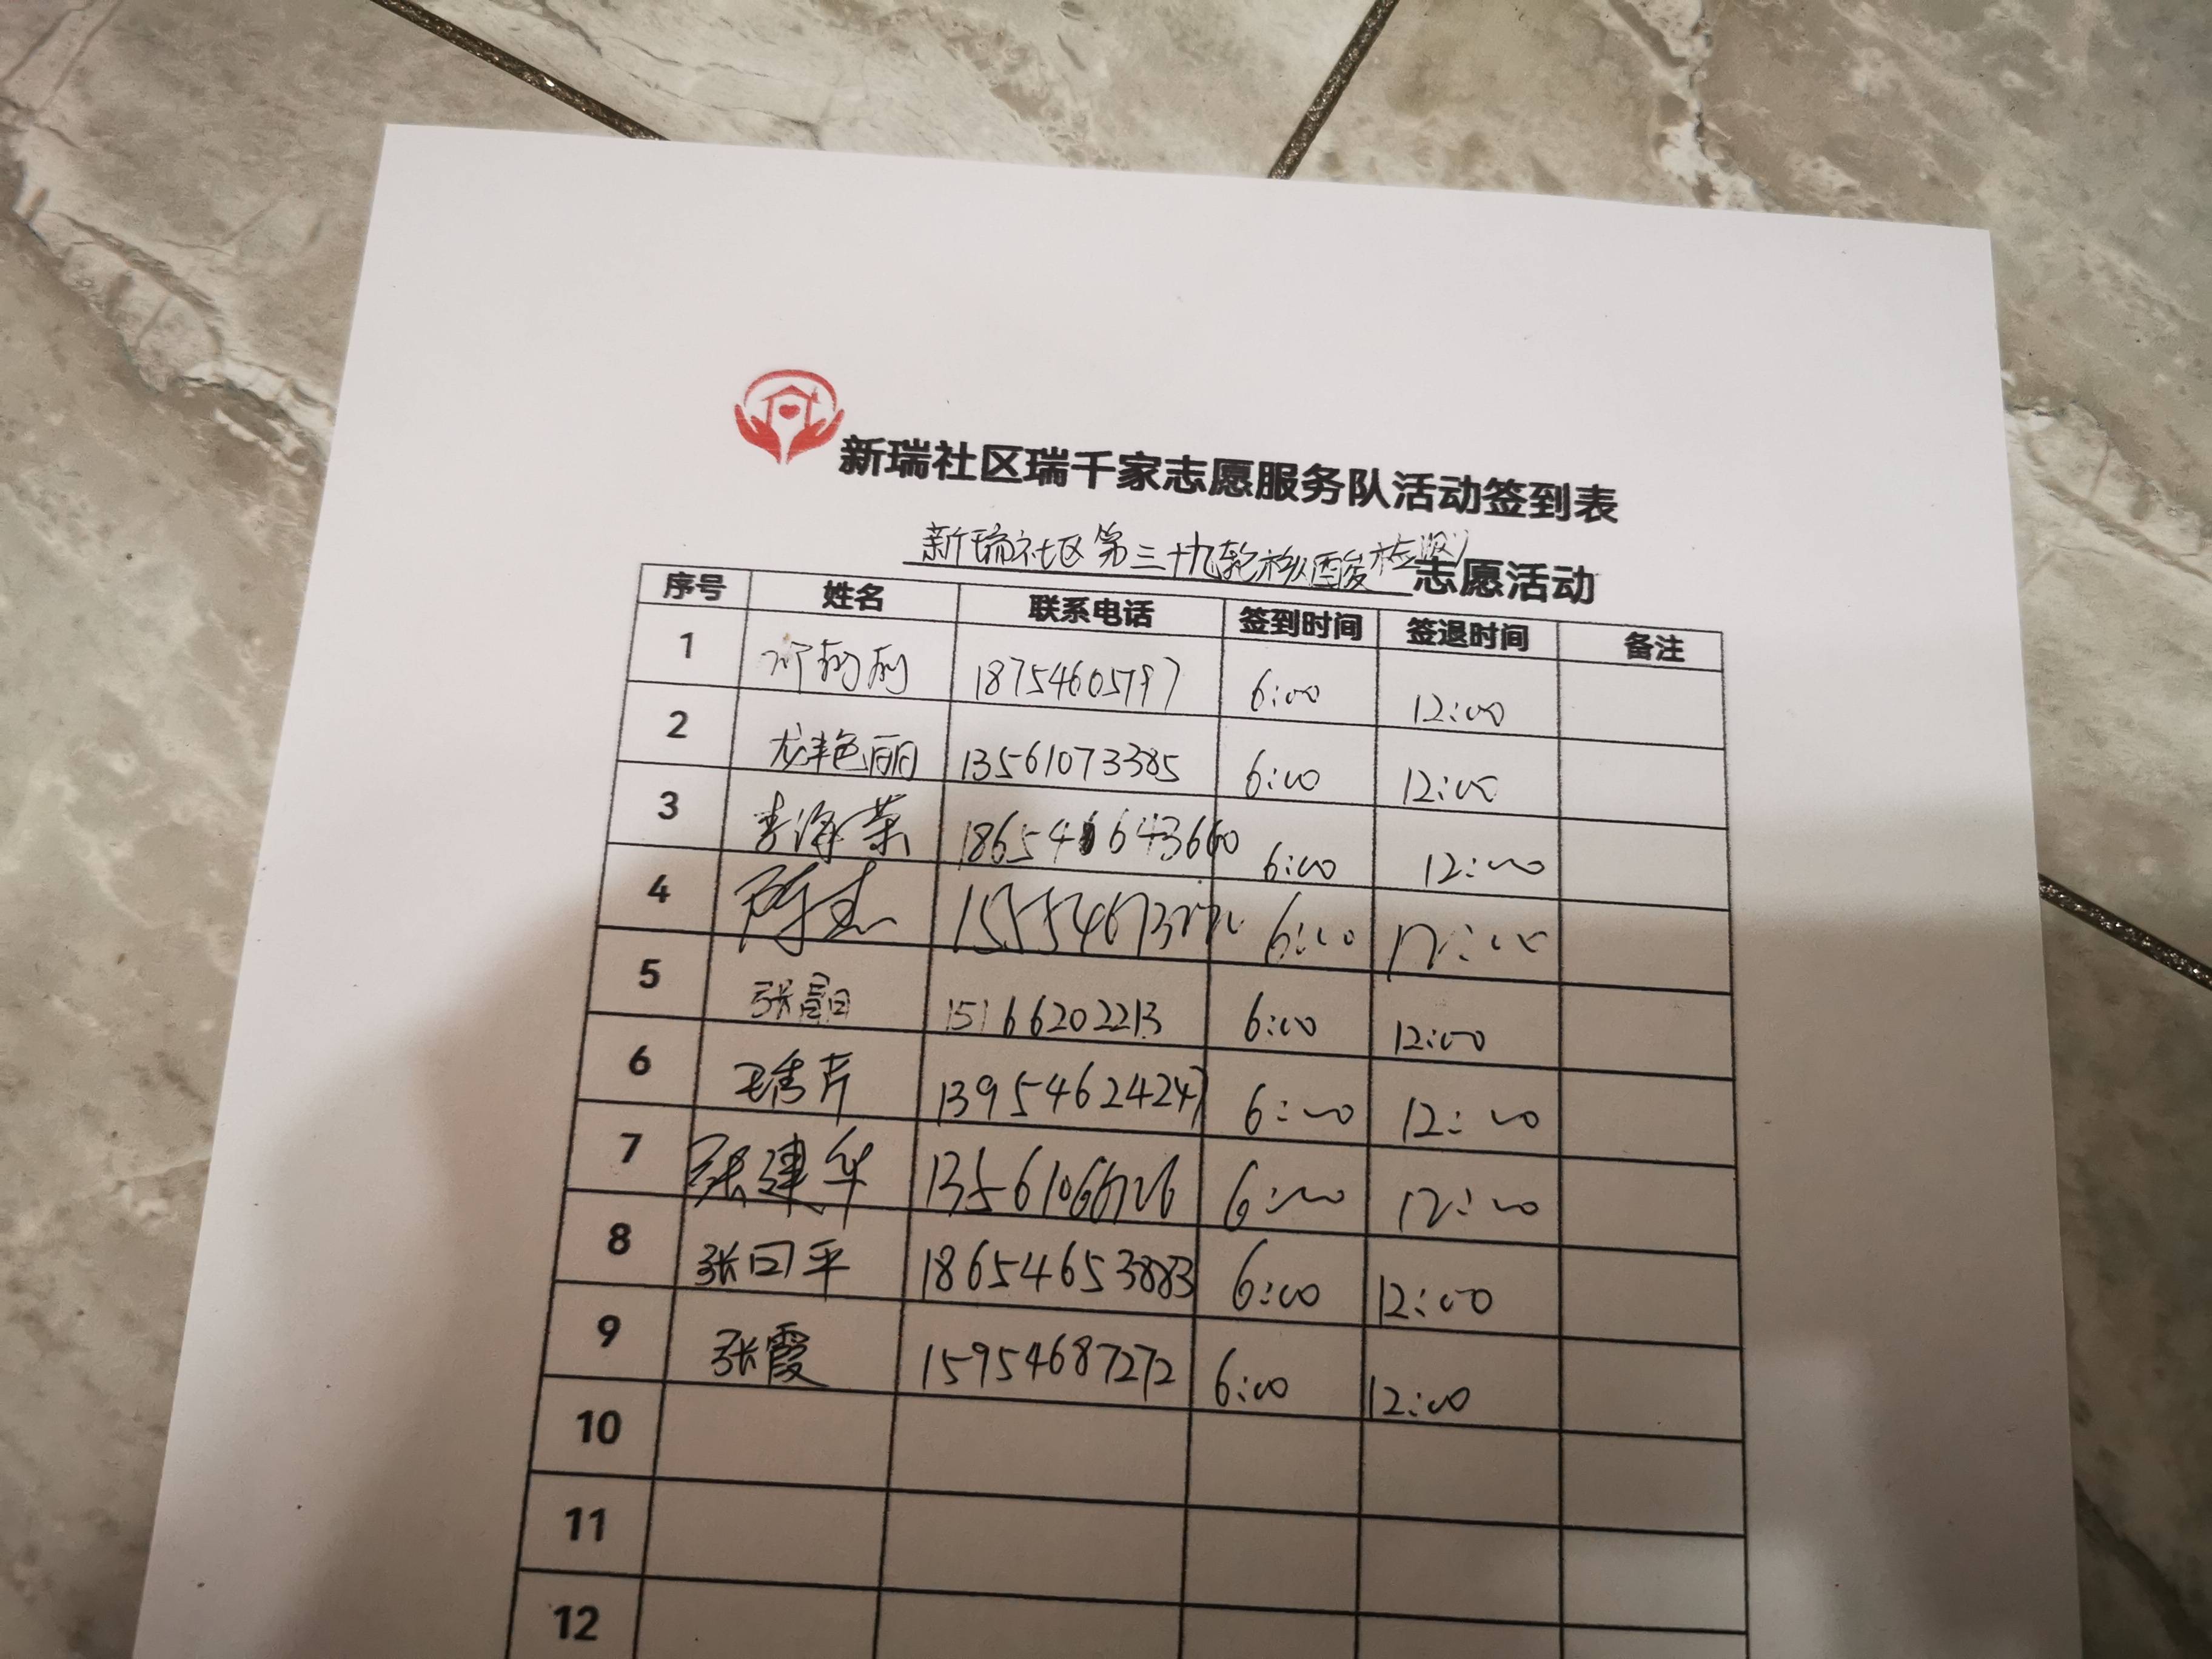 新瑞社区瑞千家志愿服务队活动签到表
新瑞社区第三十九轮核酸检测志愿活动
序号 姓名 联系电话 签到时间 签退时间 备注
1 18754605797 6:00 12:00
2 龙艳丽 13561073385 6:00 12:00
3 李海荣 6:00 12:00
4 陈杰 6:00 12:00
5 张晶 15166202213 6:00 12:00
6 13954624247 6:00 12:00
7 张建华 6:00 12:00
8 张回平 18654653883 6:00 12:00
9 张霞 15954687272 6:00 12:00
10
11
12